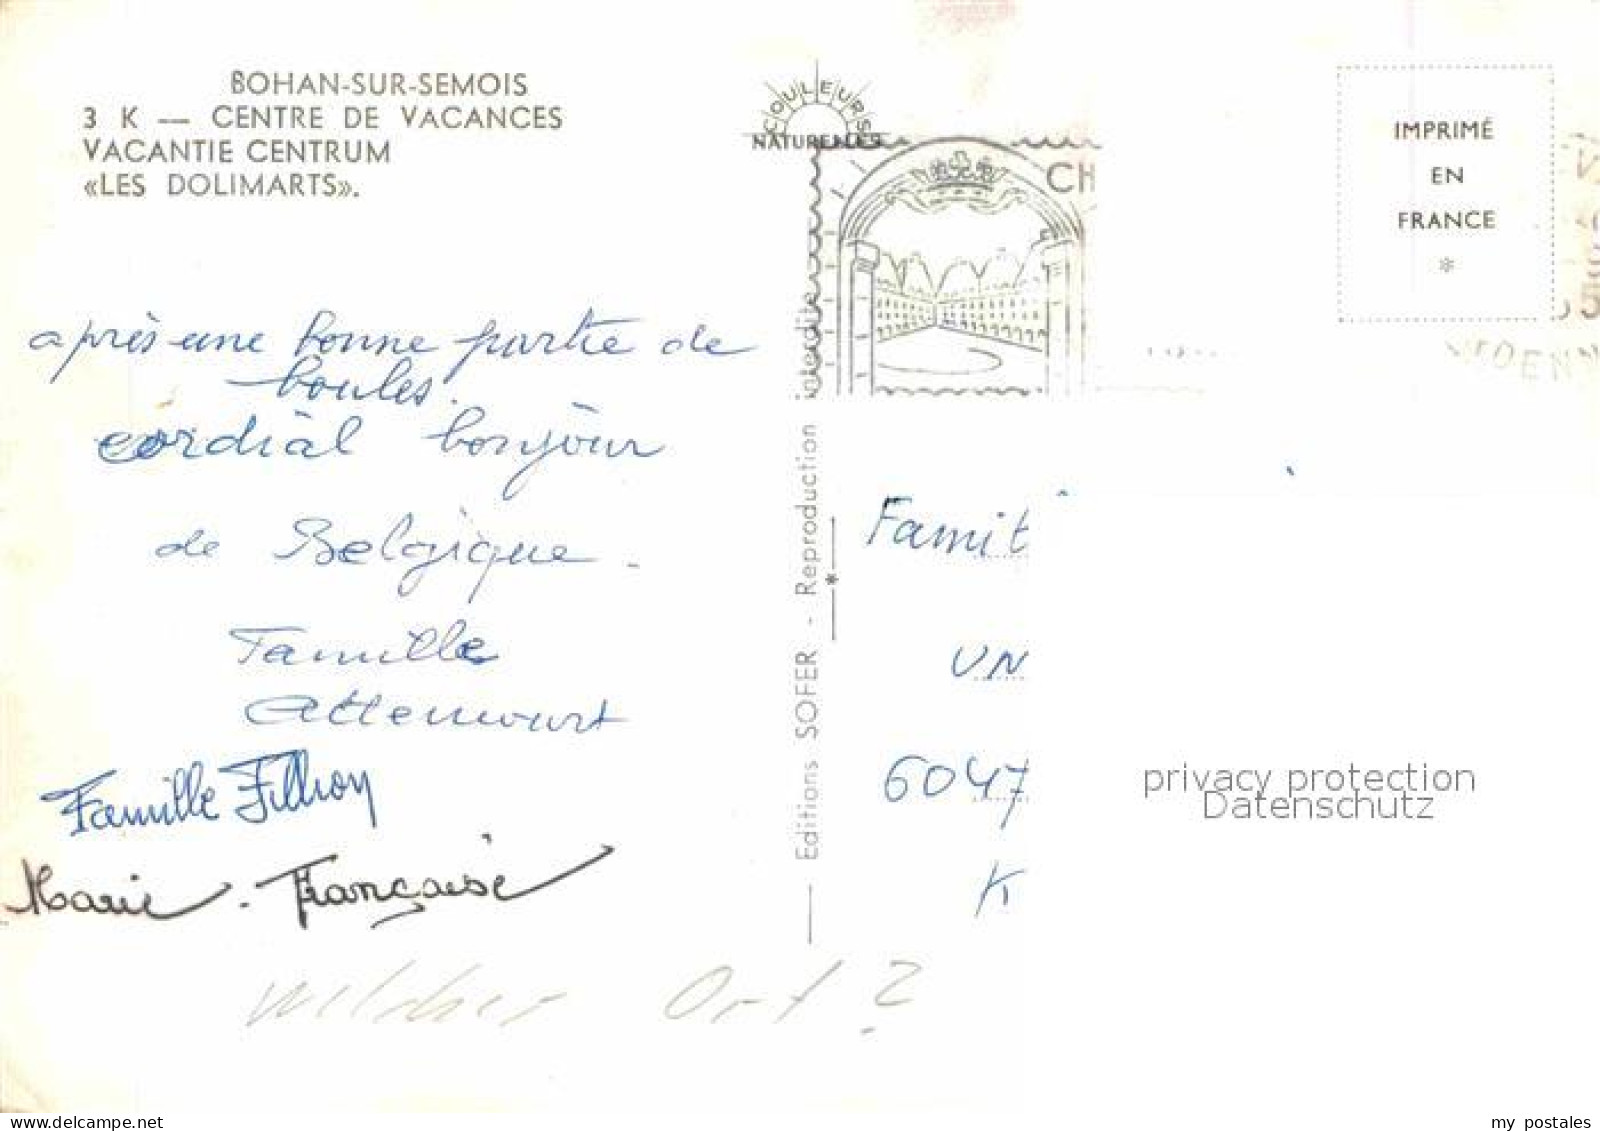 BOHAN-SUR-SEMOIS
3 K — CENTRE DE VACANCES
VACANTIE CENTRUM
«LES DOLIMARTS».
COULEURS
NATURELLES
CH
IMPRIMÉ
EN
FRANCE
*
après une bonne partie de
boules.
cordial bonjour
de Belgique.
Famille
Attencourt
Famille Fillion
Marie-Françoise
Ort?
Editions SOFER - Reproduction interdite
*
Famil
UN
6047
K
privacy protection
Datenschutz
delcampe.net
my_postales